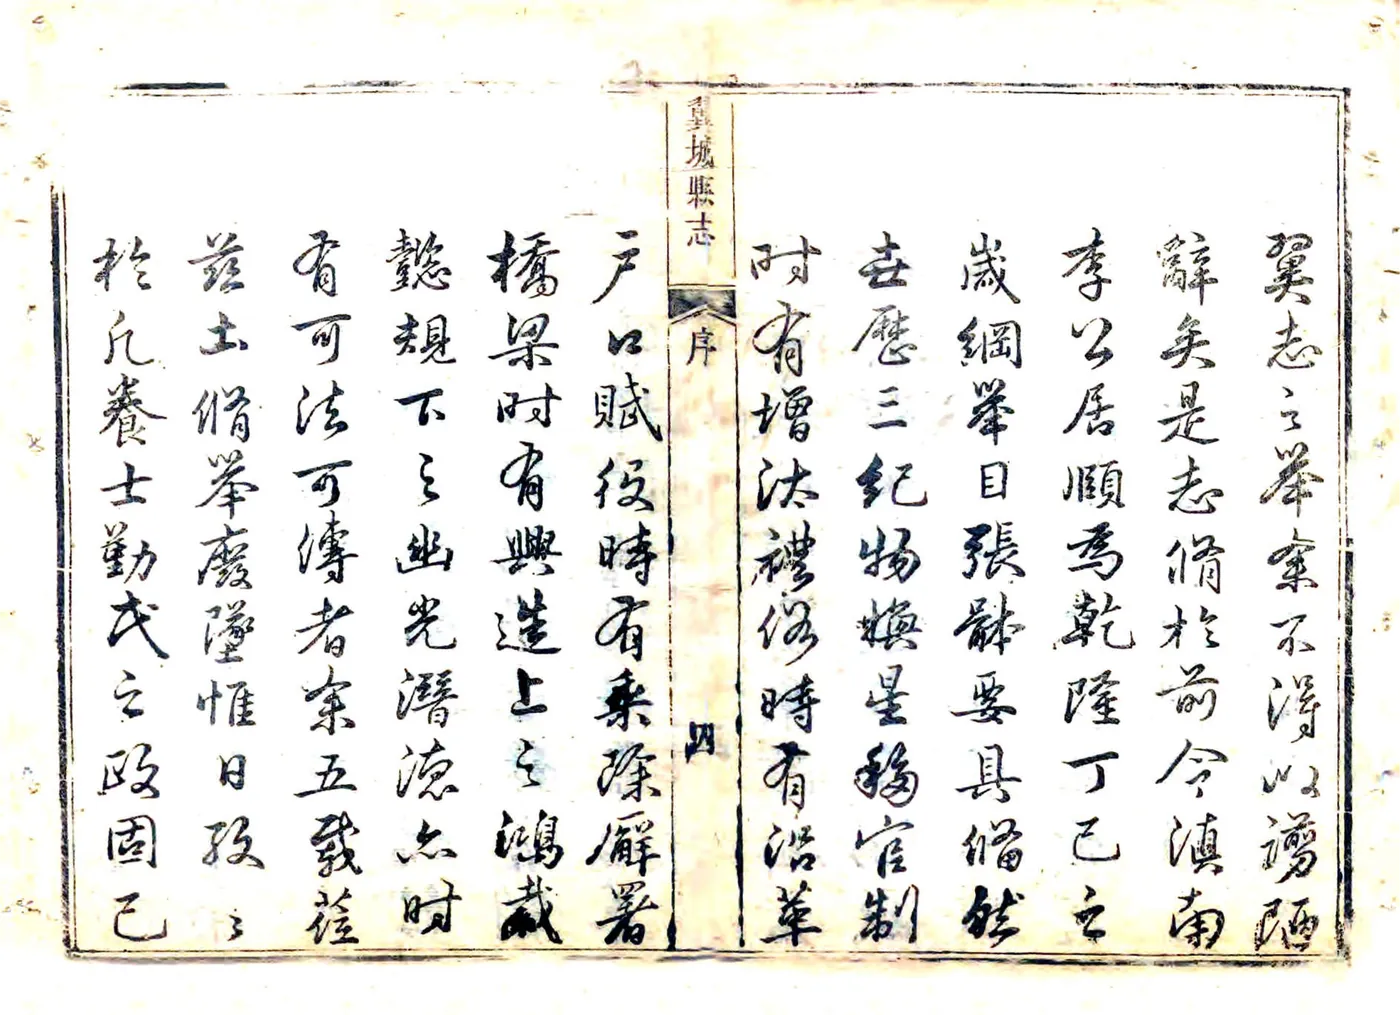 翼志之舉余不得以謭陋
辭矣是志脩於前令滇南
李公居順為乾隆丁巳之
歲綱舉目張體要具備然
世歷三紀物換星移官制
時有增汰禮俗時有沿革
翼城縣志
序
四
戶口賦役時有乘除廨署
橋梁時有興造上之鴻裁
懿規下之幽光潛德亦時
有可法可傳者余五載蒞
茲土脩舉廢墜惟日孜〻
於凡養士勤民之政固已